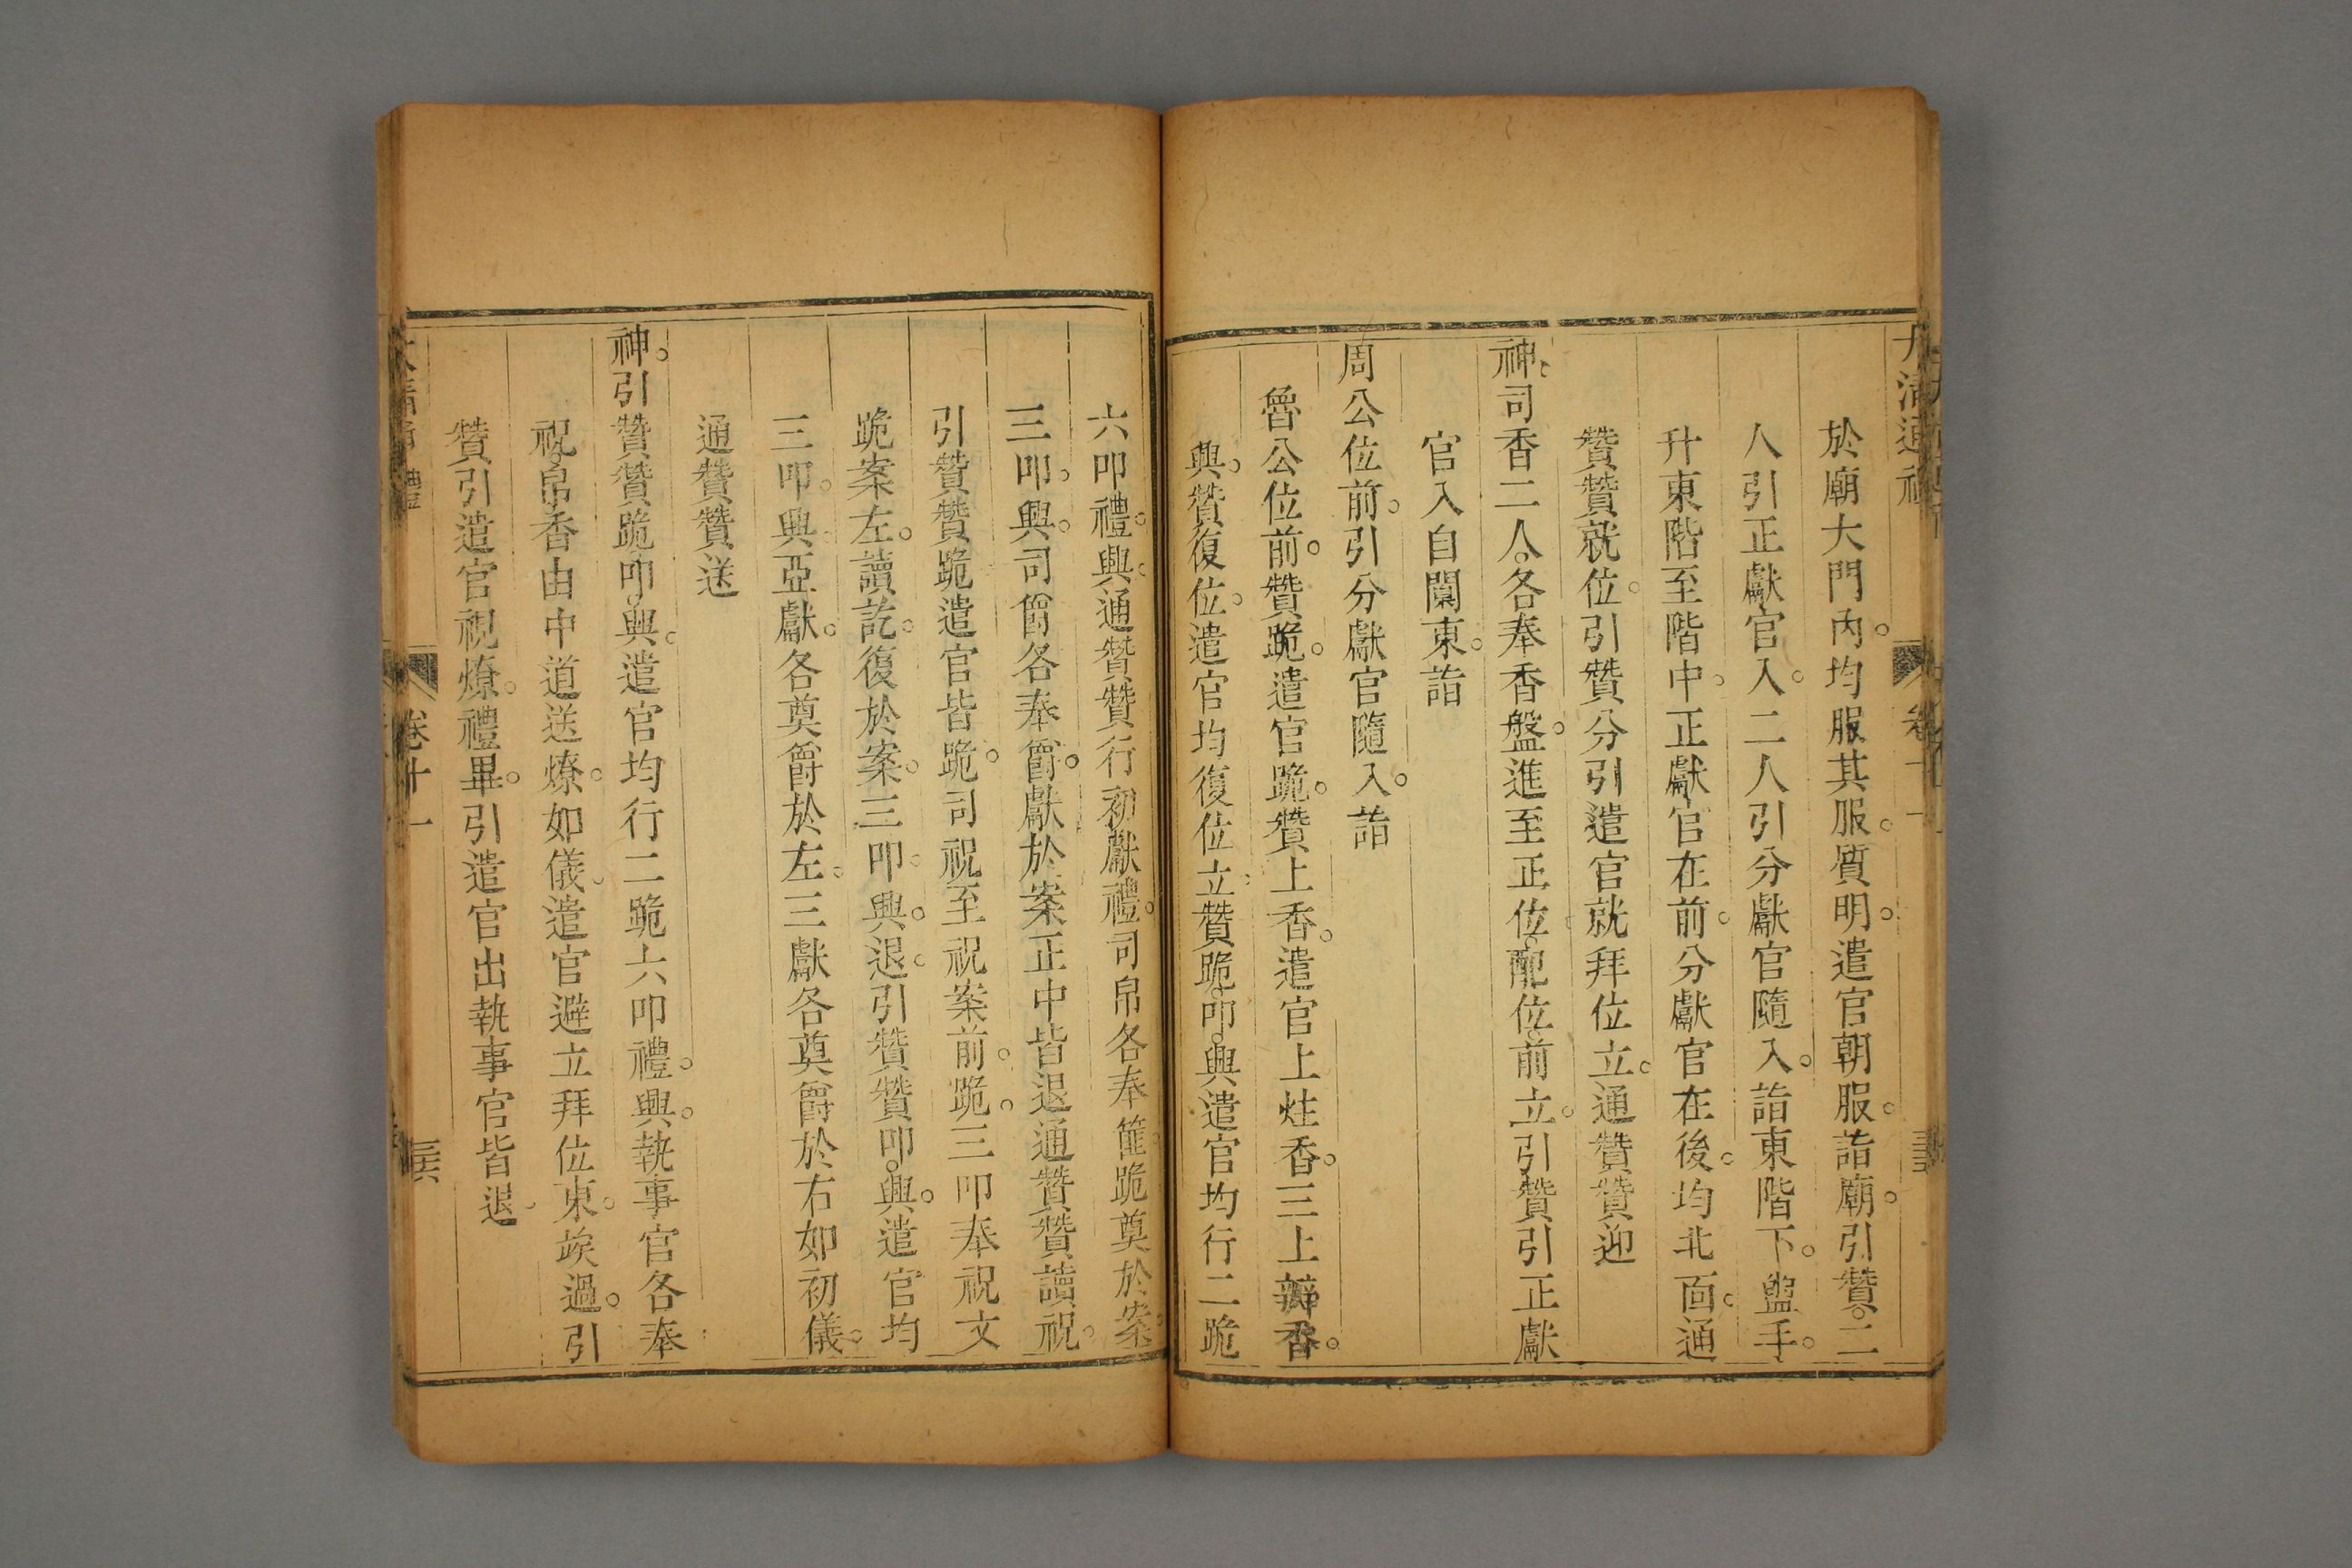 大清通禮
卷十一
於廟大門內。均服其服。質明。遣官朝服。詣廟。引贊。二
人引正獻官入。二人引分獻官隨入。詣東階下。盥手。
升東階至階中。正獻官在前。分獻官在後。均北面。通
贊贊就位。引贊分引遣官就拜位立。通贊贊迎
神。司香二人。各奉香盤。進至正位。配位。前立。引贊引正獻
官入自闑東。詣
周公位前。引分獻官隨入。詣
魯公位前。贊跪。遣官跪。贊上香。遣官上炷香。三上瓣香。
興。贊復位。遣官均復位立。贊跪。叩。興。遣官均行二跪
六叩禮。興。通贊贊行初獻禮。司帛各奉篚跪奠於案。
三叩。興。司爵各奉爵。獻於案正中皆退通贊贊讀祝。
引贊贊跪遣官皆跪。司祝至祝案前。跪。三叩奉祝文
跪案左。讀訖。復於案。三叩。興。退。引贊贊叩。興。遣官均
三叩。興。亞獻。各奠爵於左。三獻各奠爵於右如初儀。
通贊贊送
神。引贊贊跪叩。興。遣官均行二跪六叩禮。興。執事官各奉
祝。帛香由中道送燎。如儀。遣官避立拜位東。竢過。引
贊引遣官視燎。禮畢。引遣官出執事官皆退。
大清通禮
卷十一